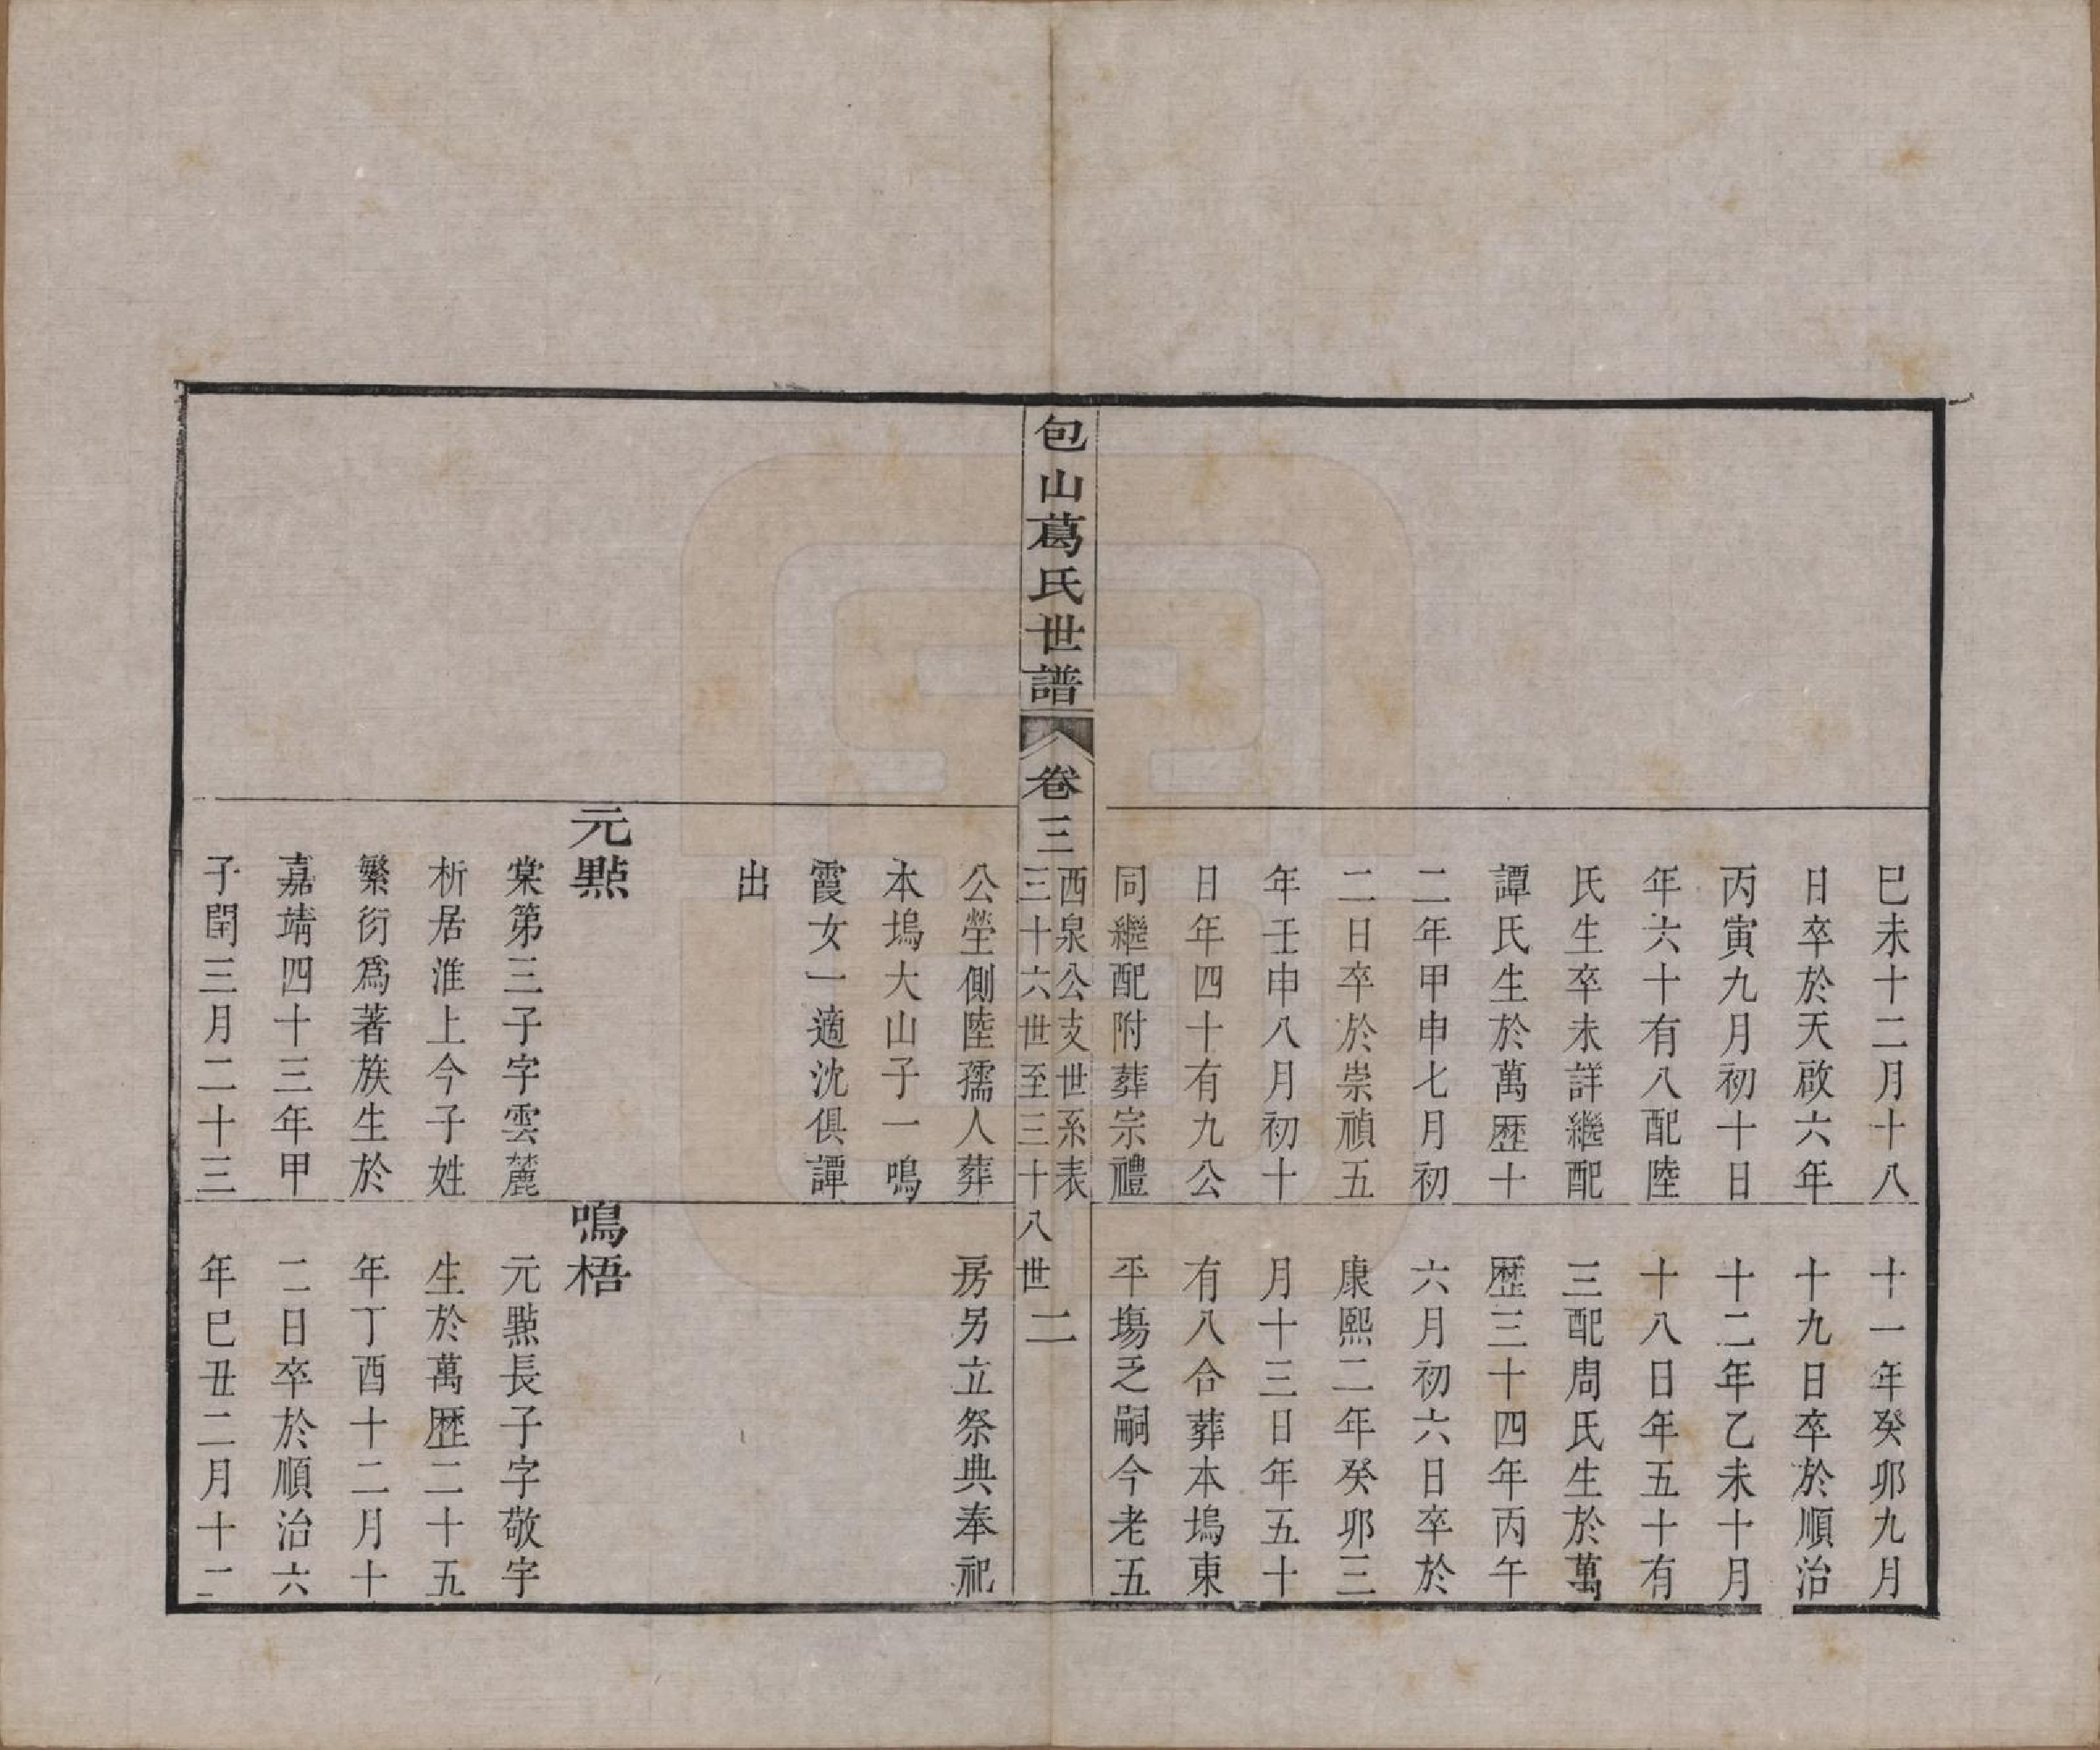 巳未十二月十八
日卒於天啟六年
丙寅九月初十日
年六十有八配陸
氏生卒未詳繼配
譚氏生於萬歷十
二年甲申七月初
二日卒於崇禎五
年壬申八月初十
日年四十有九公
同繼配附葬宗禮
十一年癸卯九月
十九日卒於順治
十二年乙未十月
十八日年五十有
三配周氏生於萬
歷三十四年丙午
六月初六日卒於
康熙二年癸卯三
月十三日年五十
有八合葬本塢東
平塲乏嗣今老五
包山葛氏世譜
卷三
西泉公支世系表
三十六世至三十八世
二
公塋側陸孺人葬
本塢大山子一鳴
霞女一適沈俱譚
出
元㸃
棠第三子字雲麓
析居淮上今子姓
繁衍為著族生於
嘉靖四十三年甲
子閏三月二十三
房另立祭典奉祀
鳴梧
元㸃長子字敬宇
生於萬歷二十五
年丁酉十二月十
二日卒於順治六
年巳丑二月十二